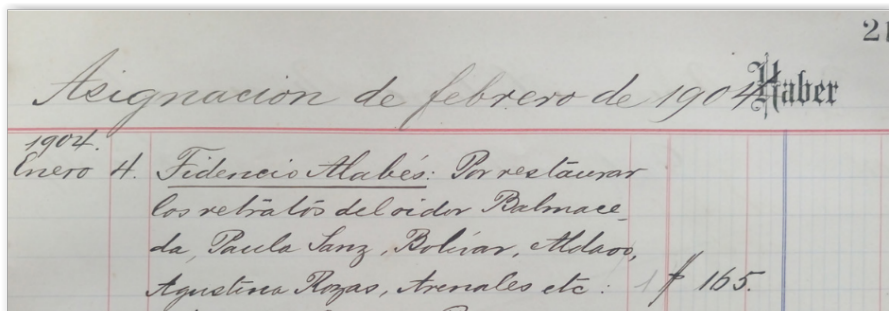 21
Asignacion de febrero de 1904
Haber
1904.
Enero 4. Fidencio Alabés: Por restaurar
los retratos del oidor Balmace_
da, Paula Sanz, Bolivar, Aldao,
Agustina Rozas, Arenales etc: 1 $ 165.